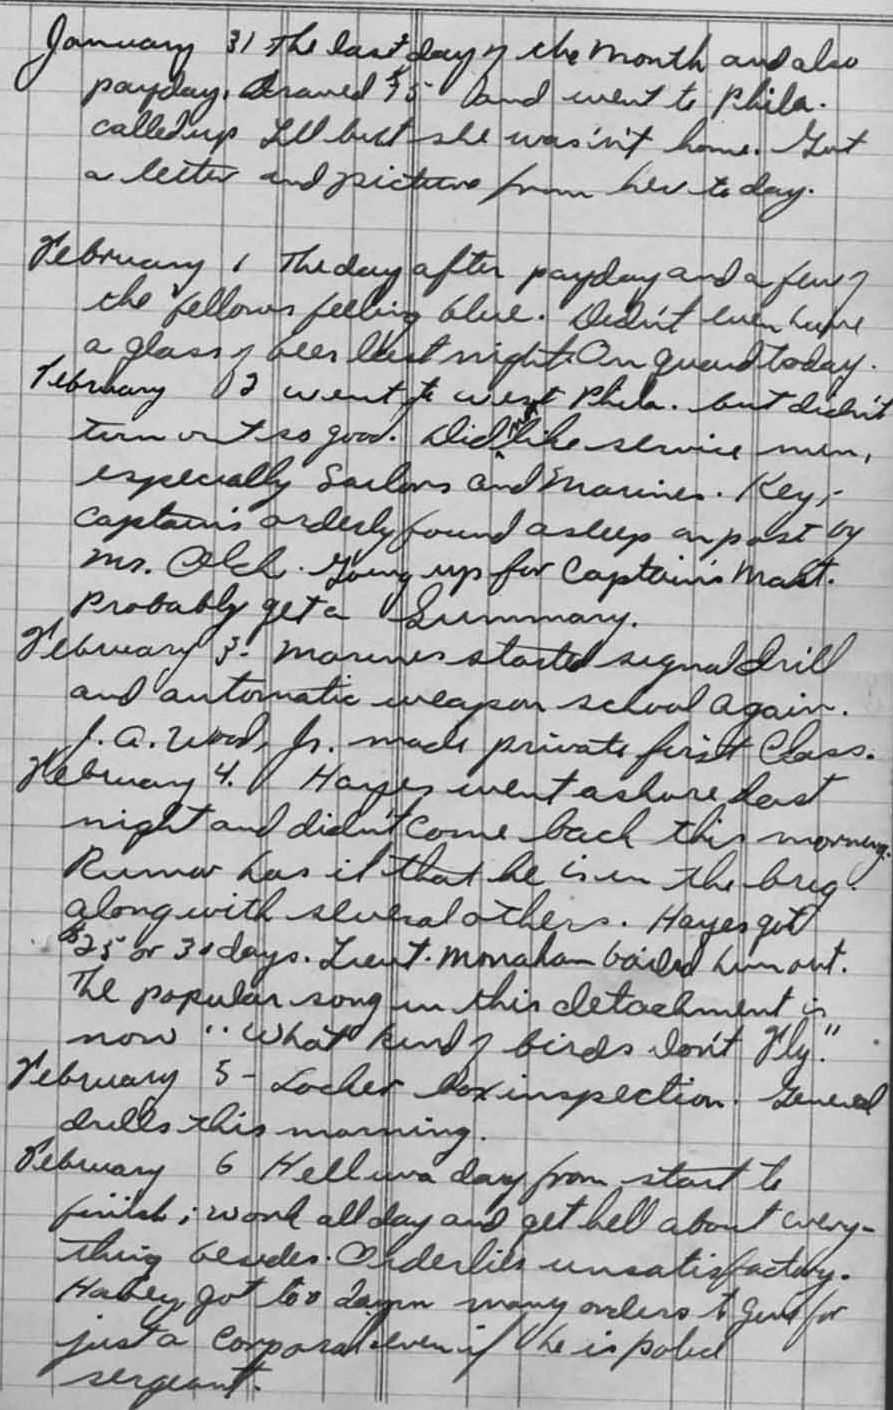 January 31 The last day of the month and also
payday. Drawed $5 and went to Phila.
called up Lil but she wasn't home. Got
a letter and picture from her today.
February 1 The day after payday and a few of
the fellows feeling blue. Didn't even have
a glass of beer last night. On guard today.
February 2 went to west Phila. but didn't
turn out so good. Didn't like service men,
especially Sailors and Marines. Key,-
Captain's orderly found asleep on post by
Mr. Olch. Going up for Captain's Mast.
Probably get a Summary.
February 3- Marines started signal drill
and automatic weapon school again.
J. A. Wood, Jr. made private first Class.
February 4. Hayes went ashore last
night and didn't come back this morning.
Rumor has it that he is in the brig
along with several others. Hayes got
$25 or 30 days. Lieut. Monahan bailed him out.
The popular song in this detachment is
now "What kind of birds don't Fly."
February 5- Locker box inspection. General
drills this morning.
February 6 Helluva day from start to
finish; work all day and get hell about every-
thing besides. Orderlies unsatisfactory.
got too damn many orders to give for
just a Corporal even if he is police
sergeant.